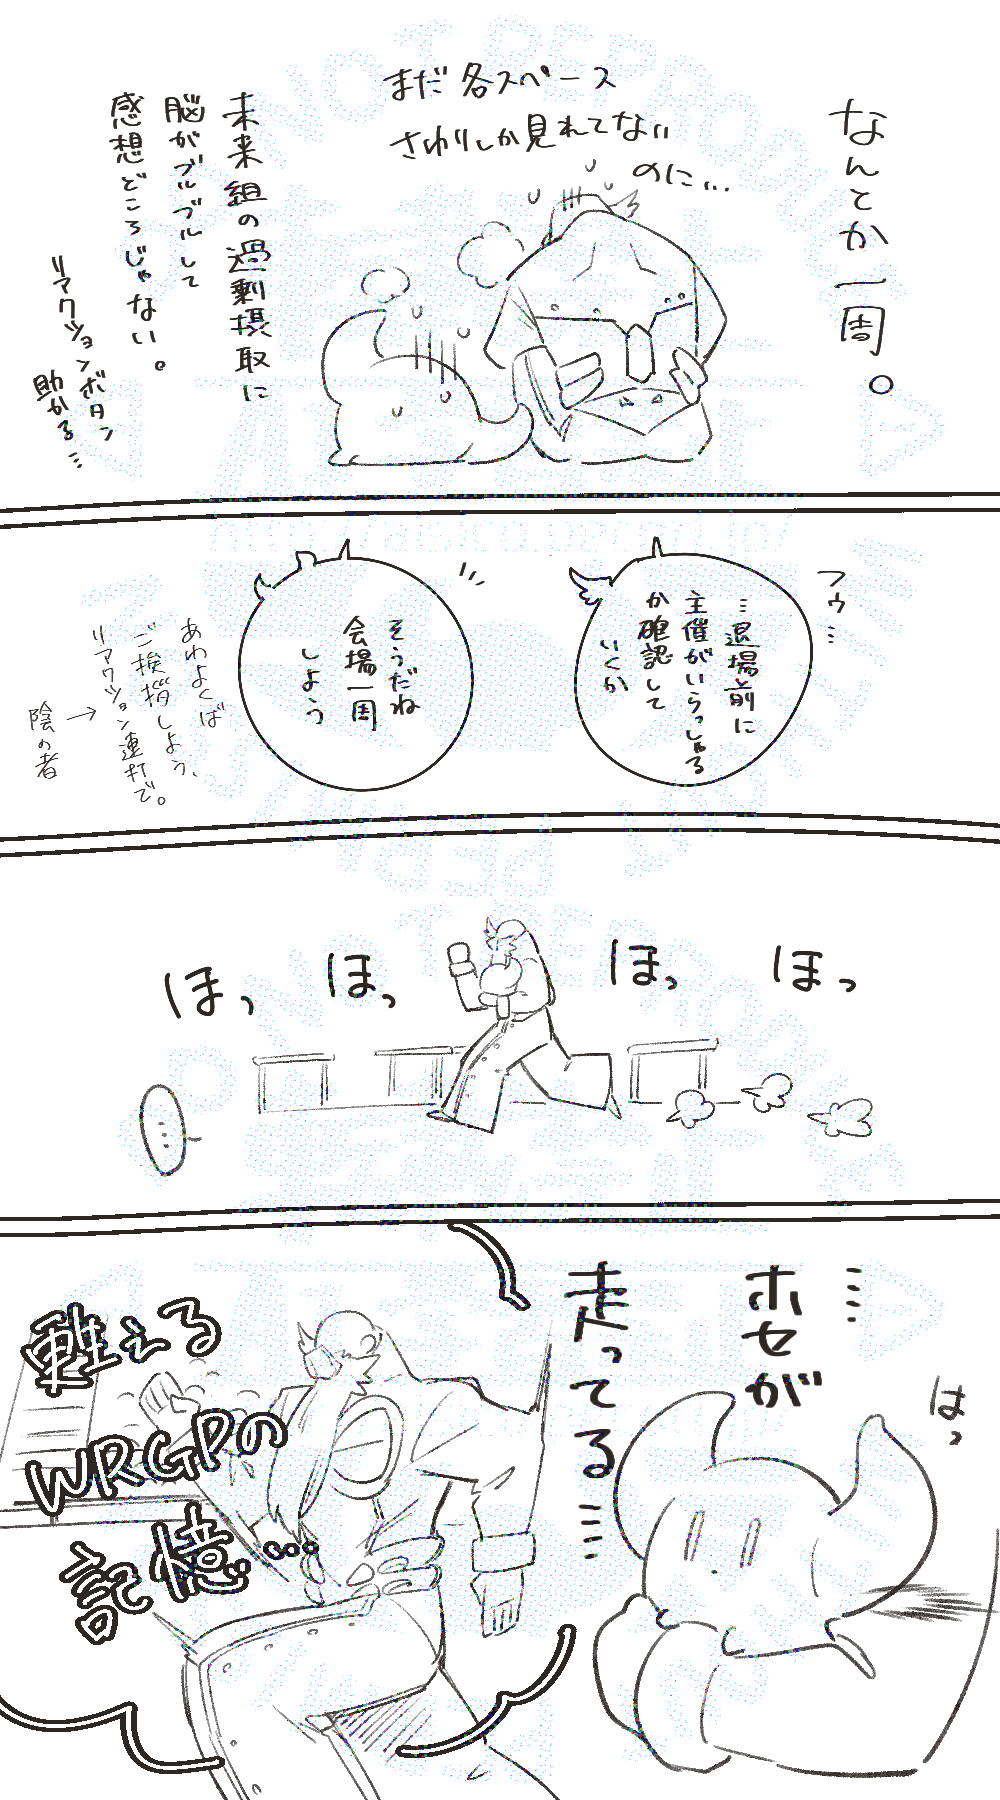 なんとか一周。
まだ各スペース
さわりしか見れてない
のに…
未来組の過剰摂取に
脳がブルブルして
感想どころじゃない。
リアクションボタン
助かる…
フゥ…
…退場前に
主催がいらっしゃる
か確認して
いくか
そうだね
会場一周
しよう
あわよくば
ご挨拶しよう、
リアクション連打で。
陰の者
ほっ
ほっ
ほっ
ほっ
…
はっ
…
ホセが
走ってる…
甦える
WRGPの
記憶…